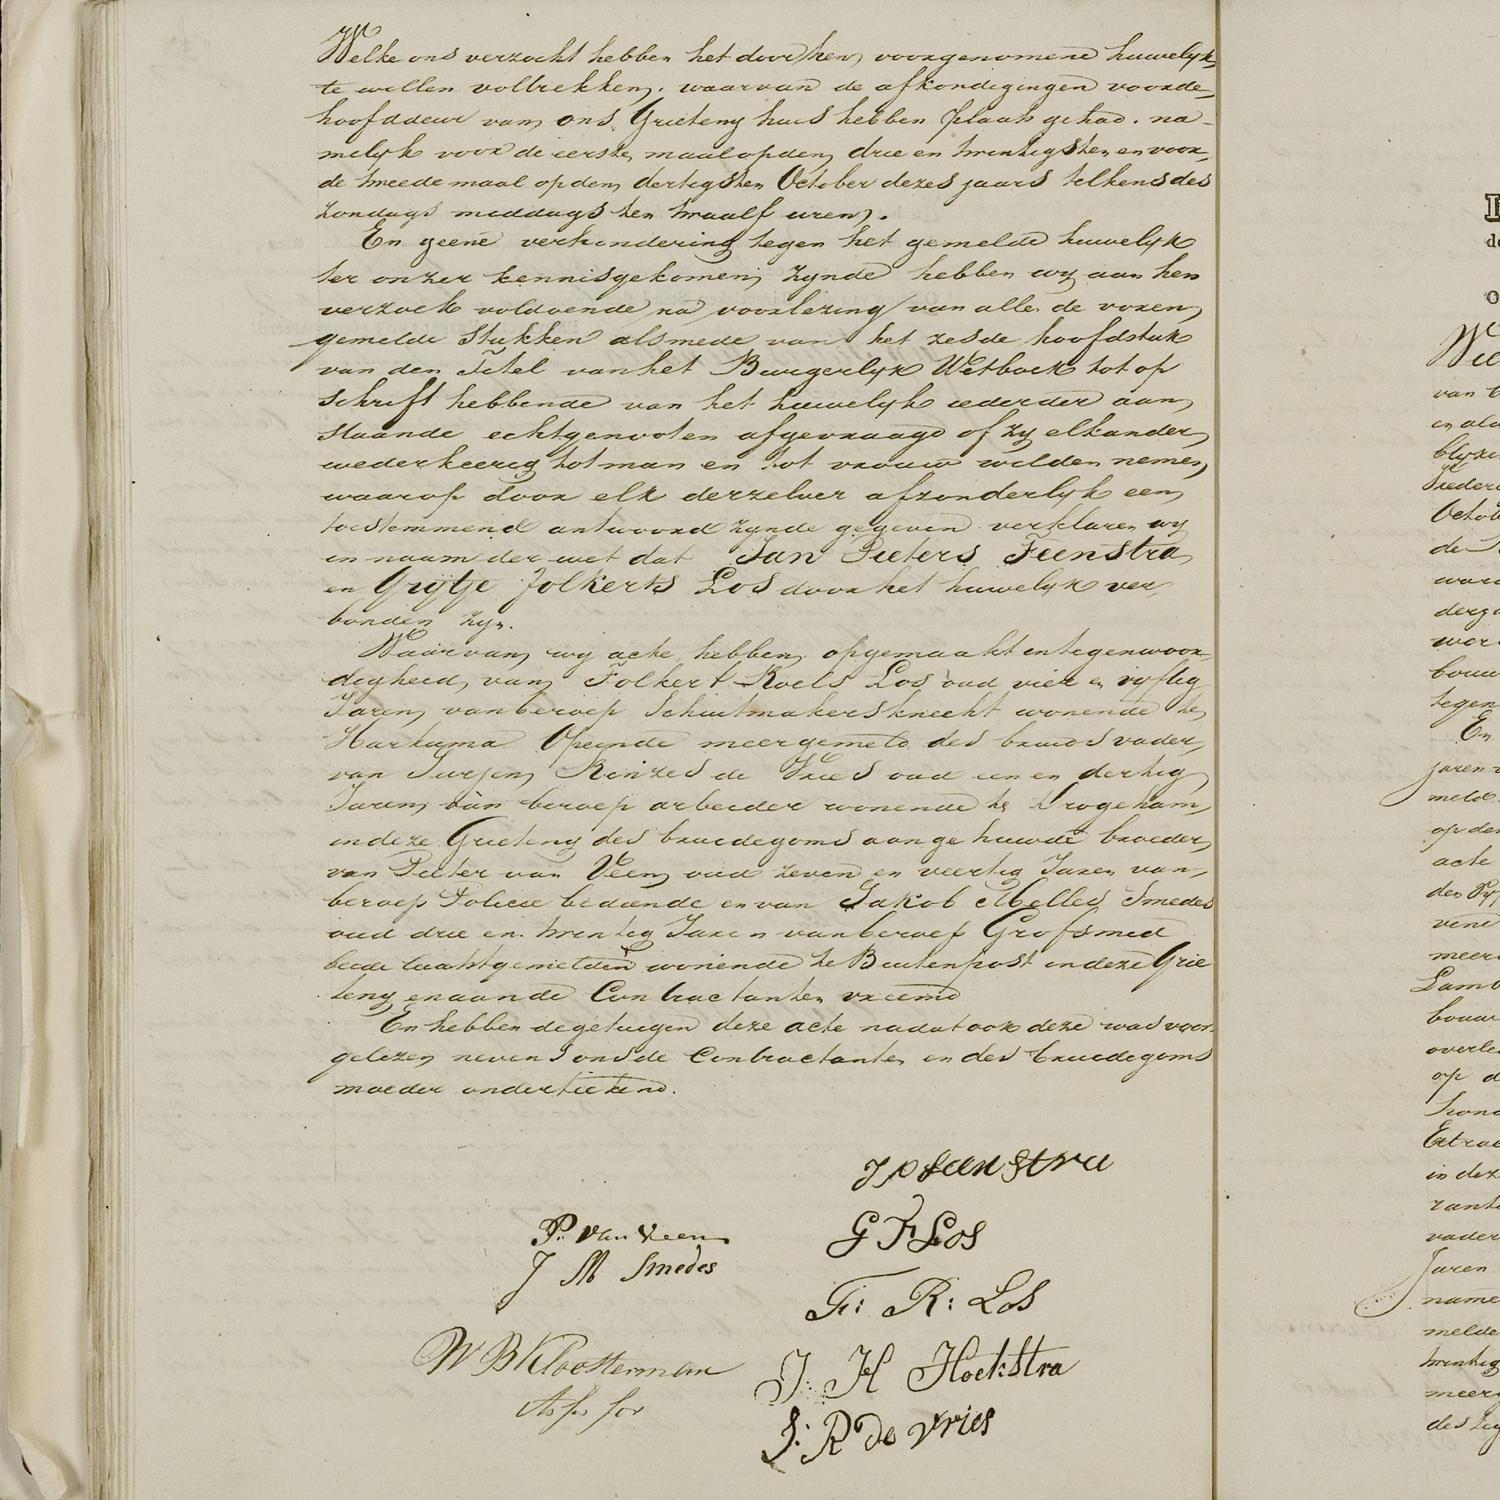 Welke ons verzocht hebben het door hen voorgenomene huwelijk
te willen voltrekken, waarvan de afkondigingen voor de
hoofddeur van ons Grieteny huis hebben plaats gehad. na-
melijk voor de eerste maal op den drie en twintigsten en voor
de tweede maal op den dertigsten October dezes jaars telkens des
zondags middags ten twaalf uren.
En geene verhindering tegen het gemelde huwelijk
ter onzer kennis gekomen zynde hebben wy aan hen
verzoek voldoende na voorlezing van alle de voren
gemelde Stukken alsmede van het zesde hoofdstuk
van den Titel van het Burgerlyk Wetboek tot op
schrift hebbende van het huwelyk ieder der aan
staande echtgenooten afgevraagd of zy elkander
wederkeerig tot man en tot vrouw wilden nemen,
waarop door elk derzelver afzonderlyk een
toestemmend antwoord zynde gegeven verklaren wy
in naam der wet dat Jan Pieters Feenstra
en Grijtje Folkerts Los door het huwelyk ver
bonden zyn.
Waarvan wy acte hebben opgemaakt in tegenwoor-
digheid van Folkert Roels Los oud vier en vyftig
Jaren van beroep Schuitmakersknecht wonende te
Harkema Opeinde meergemeld des bruids vader,
van Jurjen Rinzes de Vries oud een en dertig
Jaren van beroep arbeider wonende te Drogeham
in deze Grieteny des bruidegoms aangehuwde broeder,
van Pieter van Veen oud zeven en veertig Jaren van
beroep Policie bediende en van Jakob Melles Smedes
oud drie en twintig Jaren van beroep Grofsmed
beide laastgemelden wonende te Buitenpost in deze Grie
teny en aan de Contractanten vreemd
En hebben de getuigen deze acte nadat ook deze was voor-
gelezen nevens ons de Contractanten en des bruidegoms
moeder onderteekend.
J P Feenstra
P. van Veen
G F Los
J M Smedes
F: R: Los
W B Kloosterman
J. H Hoekstra
Assessor
J: R De Vries
van
in
October
de
En
meld
op den
acte
vene
in deze
vader
Jaren
melde